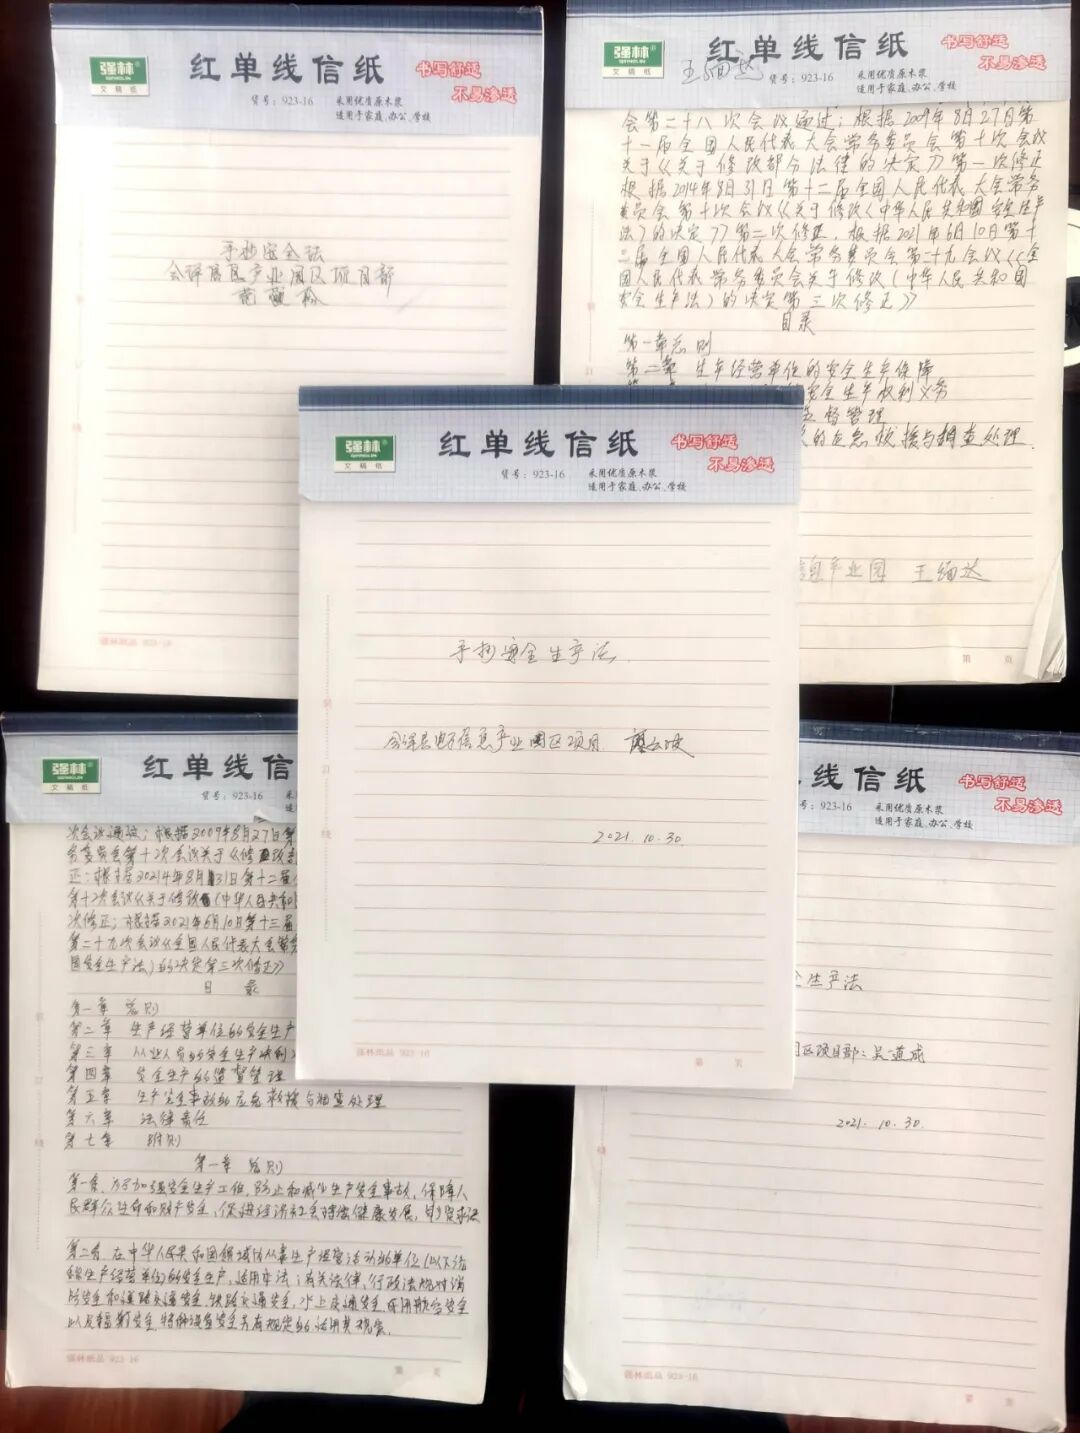 强林
文稿纸
红单线信纸
书写舒适
不易渗透
货号：923-16
采用优质原木浆
适用于家庭、办公、学校
手抄安全法
会泽信息产业园区项目部
强林纸品 923-16
强林
文稿纸
红单线信纸
书写舒适
不易渗透
货号：923-16
采用优质原木浆
适用于家庭、办公、学校
会第二十八次会议通过；根据2009年8月27日第
十一届全国人民代表大会常务委员会第十次会议
关于《关于修改部分法律的决定》第一次修正
根据2014年8月31日第十二届全国人民代表大会常务
委员会第十次会议《关于修改〈中华人民共和国安全生产
法〉的决定》第二次修正，根据2021年6月10日第十
三届全国人民代表大会常务委员会第二十九会议《全
国人民代表常务委员会关于修改（中华人民共和国
安全生产法）的决定第三次修正》
目录
第一章总则
第二章 生产经营单位的安全生产保障
安全生产权利义务
监督管理
的应急救援与调查处理
信息产业园 王
第 页
强林
文稿纸
红单线信纸
书写舒适
不易渗透
货号：923-16
采用优质原木浆
适用于家庭、办公、学校
手抄安全生产法
会泽县电子信息产业园区项目
2021.10.30
强林纸品 923-16
第 页
强林
文稿纸
红单线信
货号：923-16
次会议通过；根据2009年8月27日第
务委员会第十次会议关于《修改
正；根据20214年8月31日第十二届
第十次会议《关于修改（中华人民共和
次修正；根据2021年6月10日第十三届
第二十九次会议《全国人民代表大会常务
国安全生产法）的决定第三次修正》
目 录
第一章 总则
第二章 生产经营单位的安全生产
第三章 从业人员的安全生产权利
第四章 安全生产的监督管理
第五章 生产安全事故的应急救援与调查处理
第六章 法律责任
第七章 附则
第一章 总则
第一条、为了加强安全生产工作，防止和减少生产安全事故，保障人
民群众生命和财产安全，促进经济社会持续健康发展，制定本法
第二条、在中华人民共和国领域内从事生产经营活动的单位（以下统
称生产经营单位）的安全生产，适用本法；有关法律、行政法规对消
防安全和道路交通安全、铁路交通安全、水上交通安全、民用航空安全
以及辐射安全、特种设备安全另有规定的适用其规定.
强林纸品 923-16
第 页
线信纸
书写舒适
不易渗透
号：923-16
采用优质原木浆
适用于家庭、办公、学校
全生产法
园区项目部：吴道成
2021.10.30.
强林纸品 923-16
第 页